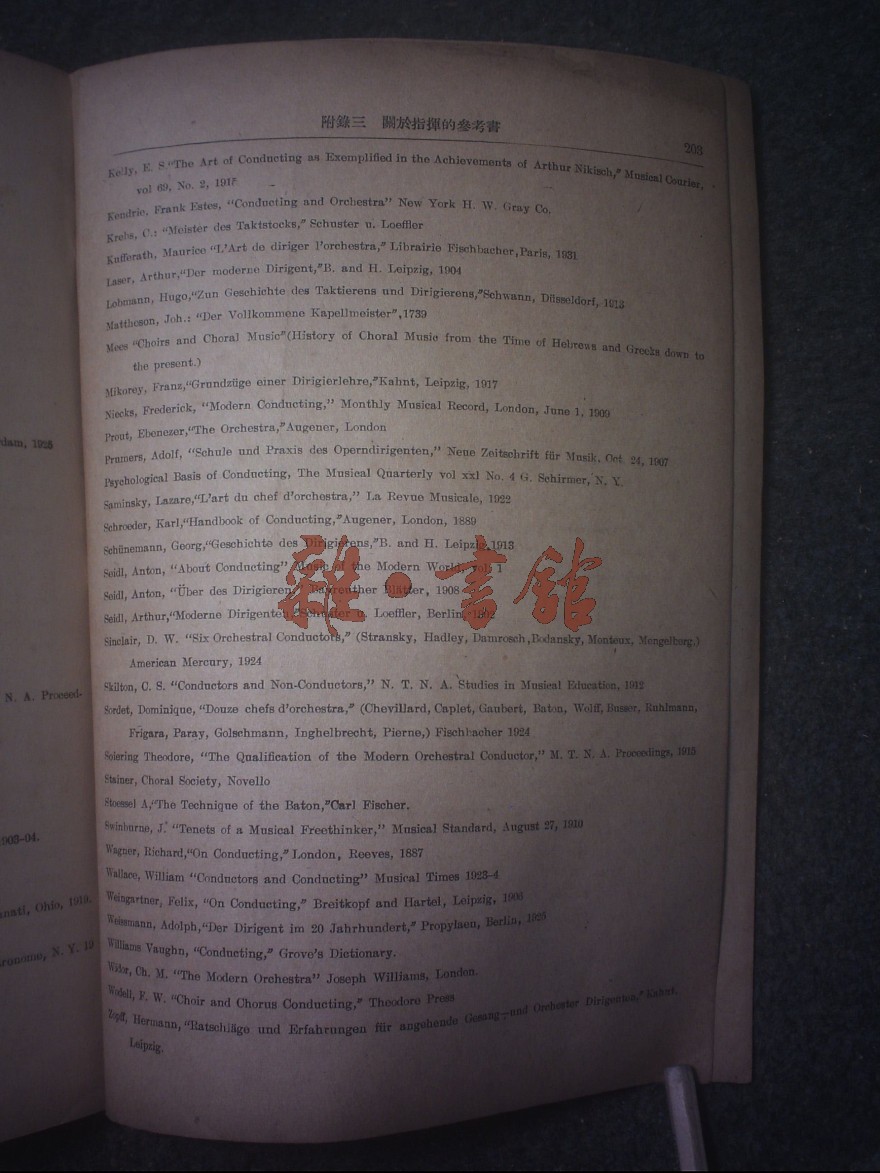 附錄三 關於指揮的參考書
203
Kelly, E. S. "The Art of Conducting as Exemplified in the Achievements of Arthur Nikisch," Musical Courier,
vol 69, No. 2, 191
Kendrie, Frank Estes, "Conducting and Orchestra" New York H. W. Gray Co.
Krebs, C.: "Meister des Taktstocks," Schuster u. Loeffler
Kufferath, Maurice "L'Art de diriger l'orchestra," Librairie Fischbacher, Paris, 1931
Laser, Arthur, "Der moderne Dirigent," B. and H. Leipzig, 1904
Lobmann, Hugo, "Zun Geschichte des Taktierens und Dirigierens," Schwann, Düsseldorf, 1913
Mattheson, Joh.: "Der Vollkommene Kapellmeister", 1739
Mees "Choirs and Choral Music" (History of Choral Music from the Time of Hebrews and Greeks down to
the present.)
Mikorey, Franz, "Grundzüge einer Dirigierlehre," Kahnt, Leipzig, 1917
Niecks, Frederick, "Modern Conducting," Monthly Musical Record, London, June 1, 1909
Prout, Ebenezer, "The Orchestra," Augener, London
Prumers, Adolf, "Schule und Praxis des Operndirigenten," Neue Zeitschrift für Musik, Oct. 24, 1907
Psychological Basis of Conducting, The Musical Quarterly vol xxl No. 4 G. Schirmer, N. Y.
Saminsky, Lazare, "L'art du chef d'orchestra," La Revue Musicale, 1922
Schroeder, Karl, "Handbook of Conducting," Augener, London, 1889
Schünemann, Georg, "Geschichte des Dirigierens," B. and H. Leipzig, 1913
Seidl, Anton, "About Conducting" Music of the Modern World, vol. 1
Seidl, Anton, "Über des Dirigieren," Bayreuther Blätter, 1908
Seidl, Arthur, "Moderne Dirigenten," Schuster u. Loeffler, Berlin, 1902
Sinclair, D. W. "Six Orchestral Conductors," (Stransky, Hadley, Damrosch, Bodansky, Monteux, Mengelburg.)
American Mercury, 1924
Skilton, C. S. "Conductors and Non-Conductors," N. T. N. A. Studies in Musical Education, 1912
Sordet, Dominique, "Douze chefs d'orchestra," (Chevillard, Caplet, Gaubert, Baton, Wolff, Busser, Ruhlmann,
Frigara, Paray, Golschmann, Inghelbrecht, Pierne,) Fischbacher 1924
Spiering Theodore, "The Qualification of the Modern Orchestral Conductor," M. T. N. A. Proceedings, 1915
Stainer, Choral Society, Novello
Stoessel A, "The Technique of the Baton," Carl Fischer.
Swinburne, J. "Tenets of a Musical Freethinker," Musical Standard, August 27, 1910
Wagner, Richard, "On Conducting," London, Reeves, 1887
Wallace, William "Conductors and Conducting" Musical Times 1923-4
Weingartner, Felix, "On Conducting," Breitkopf and Hartel, Leipzig, 1906
Weissmann, Adolph, "Der Dirigent im 20 Jahrhundert," Propylaen, Berlin, 1925
Williams Vaughn, "Conducting," Grove's Dictionary.
Widor, Ch. M. "The Modern Orchestra" Joseph Williams, London.
Wodell, F. W. "Choir and Chorus Conducting," Theodore Press
Zopff, Hermann, "Ratschläge und Erfahrungen für angehende Gesang-und Orchester Dirigenten," Kahnt,
Leipzig.
dam, 1925
N. A. Proceed-
903-04.
nati, Ohio, 1919.
ronome, N. Y. 19
雜·書館